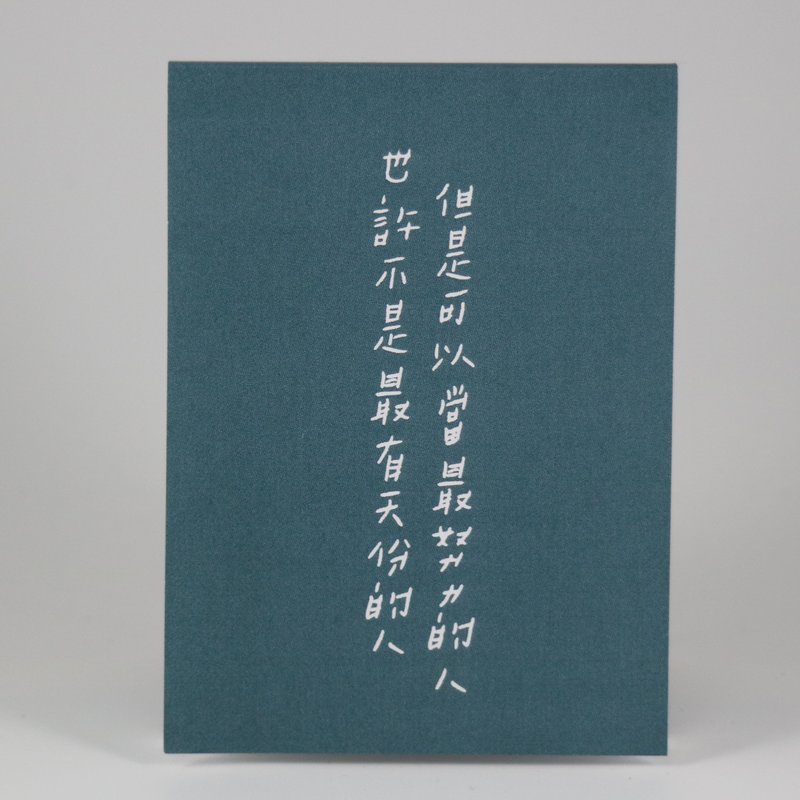 也許不是最有天份的人
但是可以當最努力的人